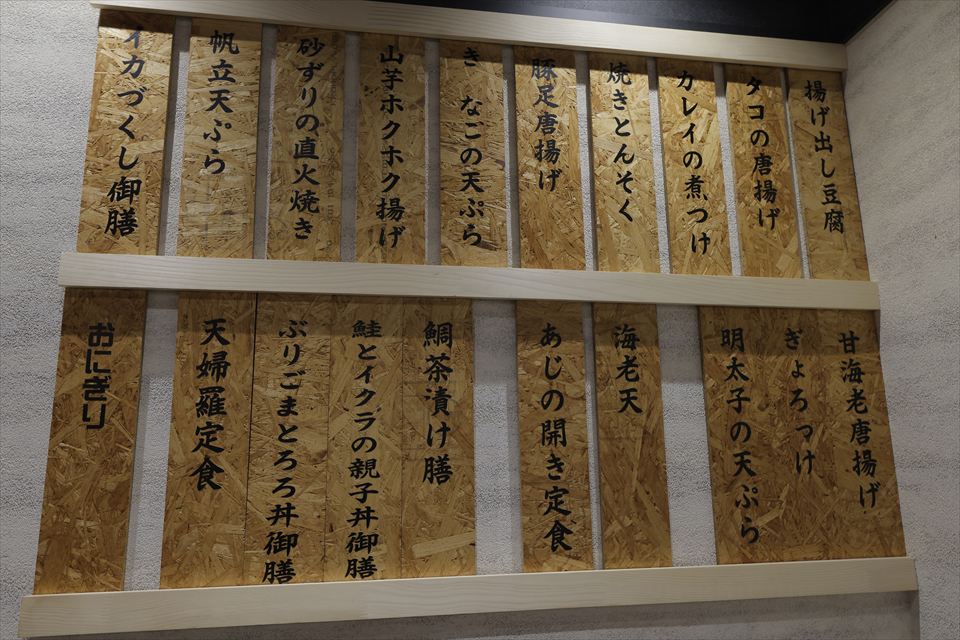 揚げ出し豆腐
タコの唐揚げ
カレイの煮つけ
焼きとんそく
豚足唐揚げ
きなごの天ぷら
山芋ホクホク揚げ
砂ずりの直火焼き
帆立天ぷら
イカづくし御膳
甘海老唐揚げ
ぎょろっけ
明太子の天ぷら
海老天
あじの開き定食
鯛茶漬け膳
鮭とイクラの親子丼御膳
ぶりごまとろろ丼御膳
天婦羅定食
おにぎり